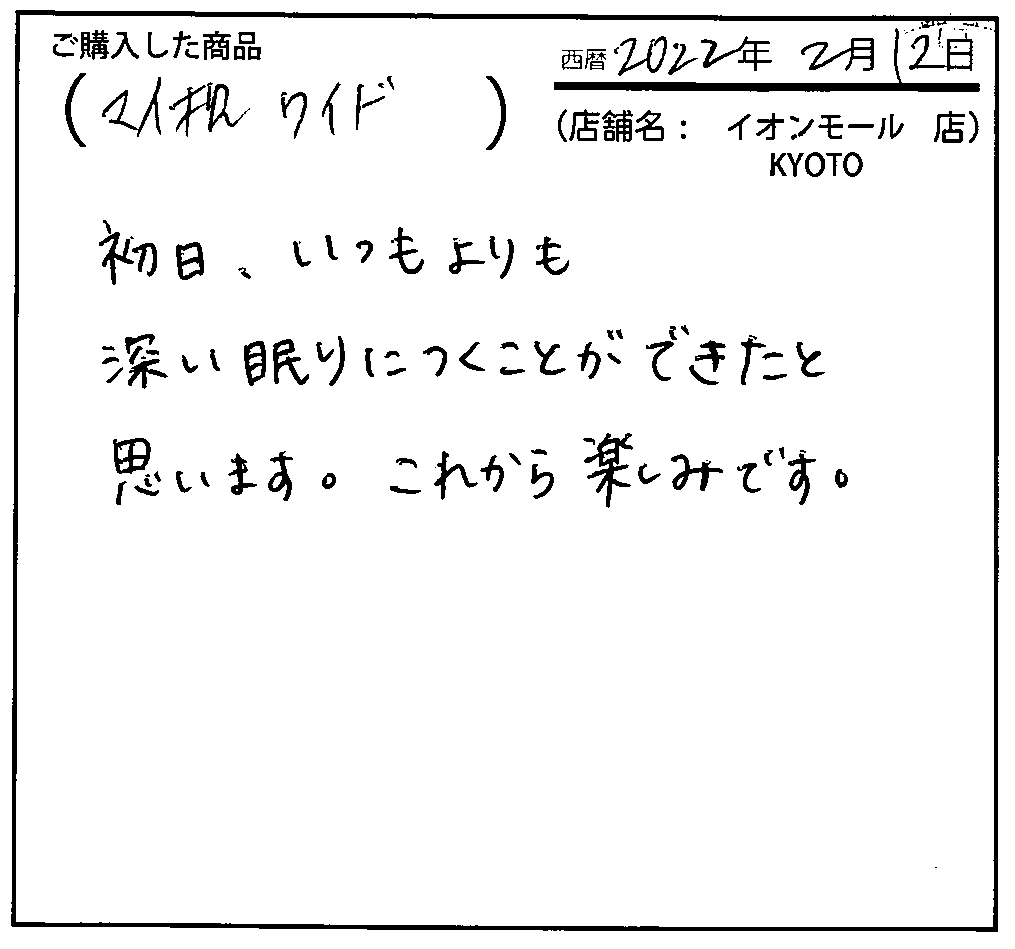 ご購入した商品
(マイ枕 ワイド)
西暦 2022年 2月12日
(店舗名: イオンモール 店)
KYOTO
初日、いつもよりも
深い眠りにつくことができたと
思います。これから楽しみです。